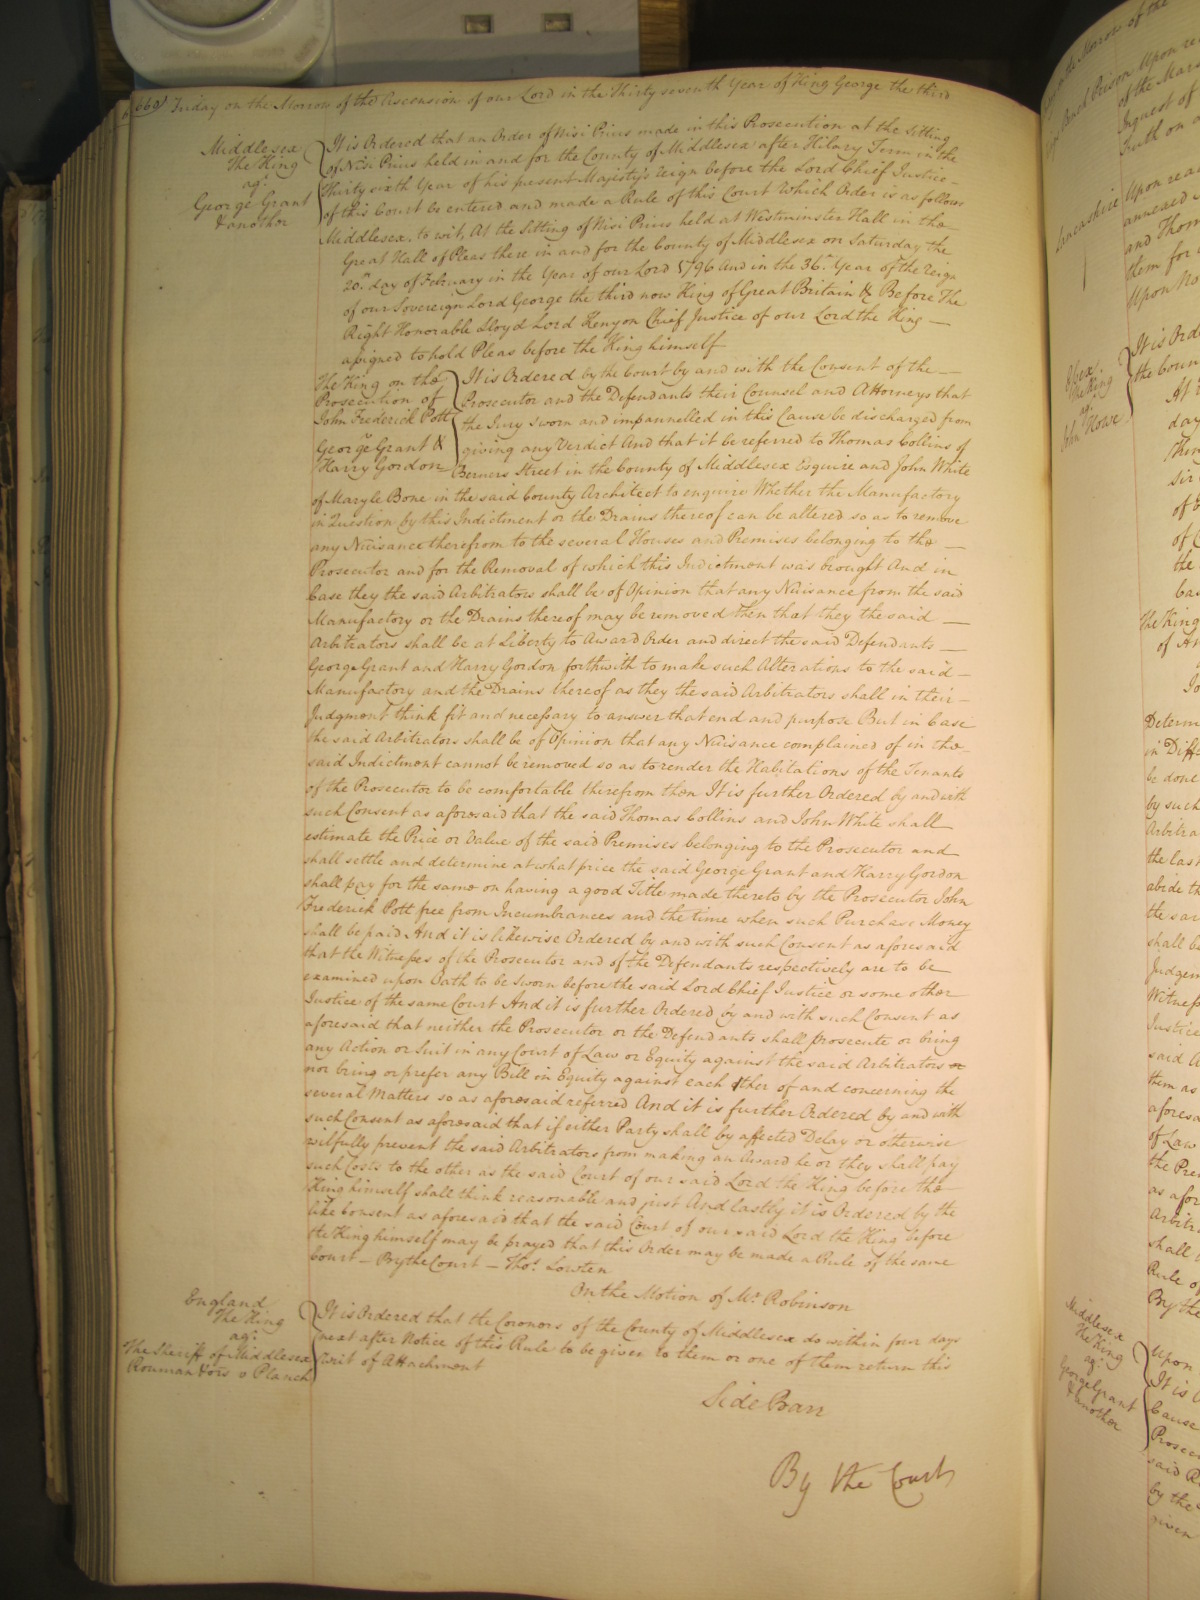 660 Friday on the Morrow of the Ascension of our Lord in the Thirty seventh Year of King George the third
Middlesex
The King
agt
George Grant
& another
It is Ordered that an Order of Nisi Prius made in this Prosecution at the Sitting
of Nisi Prius held in and for the County of Middlesex after Hilary Term in the
Thirty sixth Year of his present Majesty's reign before the Lord Chief Justice
of this Court be entered and made a Rule of this Court Which Order is as follows
Middlesex, to wit, At the Sitting of Nisi Prius held at Westminster Hall in the
Great Hall of Pleas there in and for the County of Middlesex on Saturday the
20th day of February in the Year of our Lord 1796 And in the 36th Year of the reign
of our Sovereign Lord George the third now King of Great Britain &c Before The
Right Honorable Lloyd Lord Kenyon Chief Justice of our Lord the King
assigned to hold Pleas before the King himself
The King on the
Prosecution of
John Frederick Pott
agt
George Grant &
Harry Gordon
It is Ordered by the Court by and with the Consent of the
Prosecutor and the Defendants their Counsel and Attorneys that
the Jury sworn and impannelled in this Cause be discharged from
giving any Verdict And that it be referred to Thomas Collins of
Berners Street in the County of Middlesex Esquire and John White
of Maryle Bone in the said County Architect to enquire Whether the Manufactory
in Question by this Indictment or the Drains thereof can be altered so as to remove
any Nuisance therefrom to the several Houses and Premises belonging to the
Prosecutor and for the Removal of which this Indictment was brought And in
Case they the said Arbitrators shall be of Opinion that any Nuisance from the said
Manufactory or the Drains thereof may be removed then that they the said
Arbitrators shall be at Liberty to Award Order and direct the said Defendants
George Grant and Harry Gordon forthwith to make such Alterations to the said
Manufactory and the Drains thereof as they the said Arbitrators shall in their
Judgment think fit and necessary to answer that end and purpose But in Case
the said Arbitrators shall be of Opinion that any Nuisance complained of in the
said Indictment cannot be removed so as to render the Habitations of the Tenants
of the Prosecutor to be comfortable therefrom then It is further Ordered by and with
such Consent as aforesaid that the said Thomas Collins and John White shall
estimate the Price or Value of the said Premises belonging to the Prosecutor and
shall settle and determine at what price the said George Grant and Harry Gordon
shall pay for the same on having a good Title made thereto by the Prosecutor John
Frederick Pott free from Incumbrances and the time when such Purchase Money
shall be paid And it is likewise Ordered by and with such Consent as aforesaid
that the Witnesses of the Prosecutor and of the Defendants respectively are to be
examined upon Oath to be sworn before the said Lord Chief Justice or some other
Justice of the same Court And it is further Ordered by and with such Consent as
aforesaid that neither the Prosecutor or the Defendants shall prosecute or bring
any Action or Suit in any Court of Law or Equity against the said Arbitrators or
nor bring or prefer any Bill in Equity against each other of and concerning the
several Matters so as aforesaid referred And it is further Ordered by and with
such Consent as aforesaid that if either Party shall by affected Delay or otherwise
wilfully prevent the said Arbitrators from making an Award he or they shall pay
such Costs to the other as the said Court of our said Lord the King before the
King himself shall think reasonable and just And lastly it is Ordered by the
like Consent as aforesaid that the said Court of our said Lord the King before
the King himself may be prayed that this Order may be made a Rule of the same
Court – By the Court – Thos. Lowten
On the Motion of Mr Robinson
England
The King
agt
The Sheriff of Middlesex
Rouman & ors v Planck
It is Ordered that the Coroners of the County of Middlesex do within four days
next after Notice of this Rule to be given to them or one of them return this
Writ of Attachment
Side Barr
By the Court
Lancashire
Essex
The King
agt
John Howe
Middlesex
The King
agt
George Grant
& another